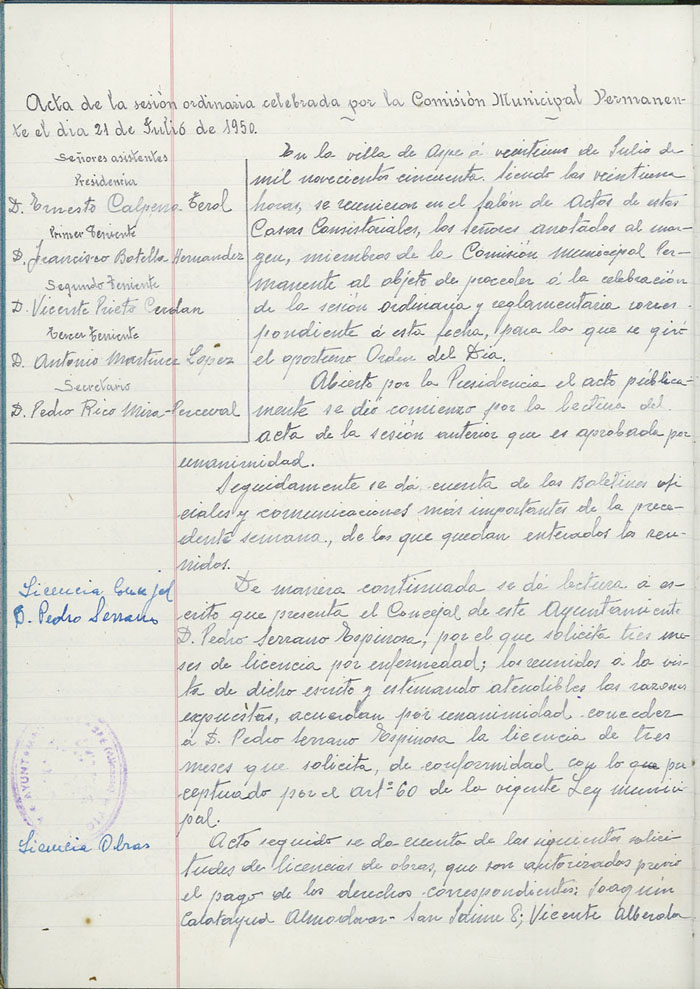 Acta de la sesión ordinaria celebrada por la Comisión Municipal Permanen-
te el dia 21 de Julio de 1950.
Señores asistentes
Presidencia
D. Ernesto Calpena Terol
Primer Teniente
D. Francisco Botella Hernandez
Segundo Teniente
D. Vicente Prieto Cerdan
Tercer Teniente
D. Antonio Martinez Lopez
Secretario
D. Pedro Rico Mira-Perceval
En la villa de Aspe á veintiuno de Julio de
mil novecientos cincuenta. Siendo las veintiuna
horas, se reunieron en el Salón de Actos de estas
Casas Consistoriales, los señores anotados al mar-
gen, miembros de la Comisión Municipal Per-
manente al objeto de proceder á la celebración
de la sesión ordinaria y reglamentaria corres-
pondiente á esta fecha, para la que se giró
el oportuno Orden del Dia.
Abierto por la Presidencia el acto publica-
mente se dió comienzo por la lectura del
acta de la sesión anterior que es aprobada por
unanimidad.
Seguidamente se dá cuenta de los Boletines ofi
ciales y comunicaciones más importantes de la prece-
dente semana, de los que quedan enterados los reu-
nidos.
Licencia Concejal
D. Pedro Serrano
De manera continuada se dá lectura á es-
crito que presenta el Concejal de este Ayuntamiento
D. Pedro Serrano Espinosa, por el que solicita tres me-
ses de licencia por enfermedad; los reunidos á la vis-
ta de dicho escrito y estimando atendibles las razones
expuestas, acuerdan por unanimidad conceder
á D. Pedro Serrano Espinosa la licencia de tres
meses que solicita, de conformidad con lo que pre
ceptuado por el artº 60 de la vigente Ley munici-
pal.
AYUNTAMI
Licencia Obras
Acto seguido se da cuenta de las siguientes solici-
tudes de licencias de obras, que son autorizadas previo
el pago de los derechos correspondientes: Joaquín
Calatayud Almodovar- San Jaime 8; Vicente Alberola